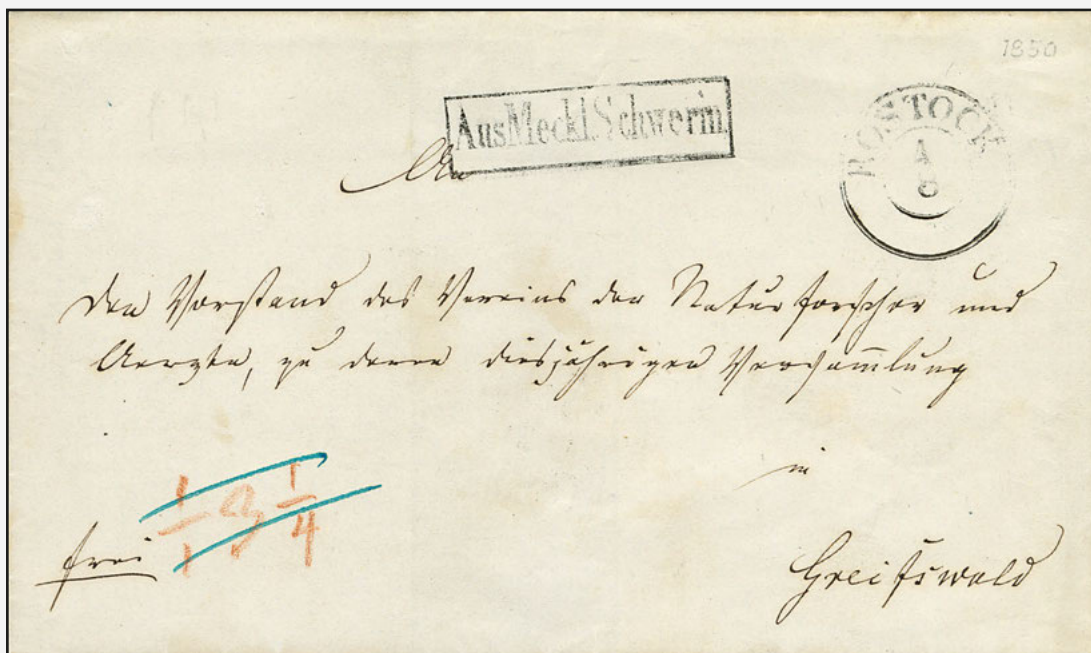 1850
Aus Meckl. Schwerin
ROSTOCK
An
den Vorstand des Vereins der Naturforscher und
Aerzte, zu deren diesjährigen Versammlung
in
frei
Greifswald